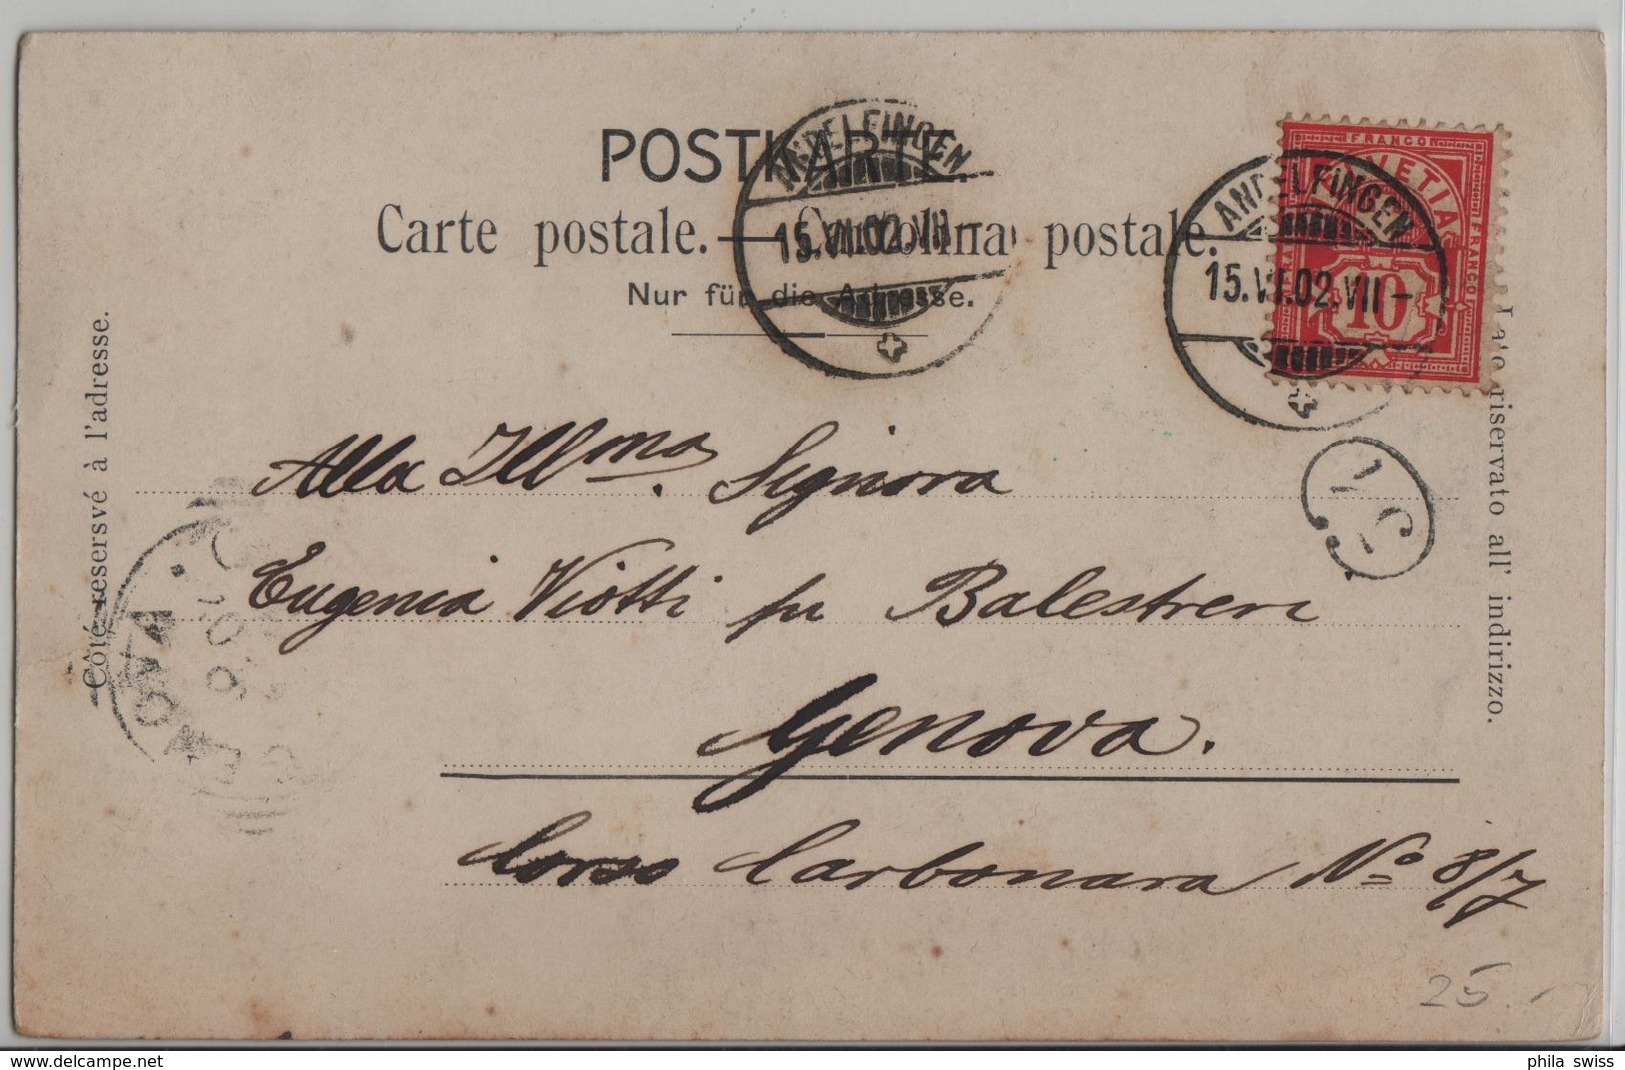 POSTKARTE.
Carte postale. — Cartolina postale.
Nur für die Adresse.
ANDELFINGEN
15.VI.02.VII–
ANDELFINGEN
15.VI.02.VII–
FRANCO
HELVETIA
FRANCO
10
Côté resersvé à l'adresse.
Lato riservato all' indirizzo.
Alla Illma. Signora
Eugenia Viotti fu Balestreri
Genova.
Corso Carbonara No 8/7
GENOVA
25.-
delcampe.net
phila swiss